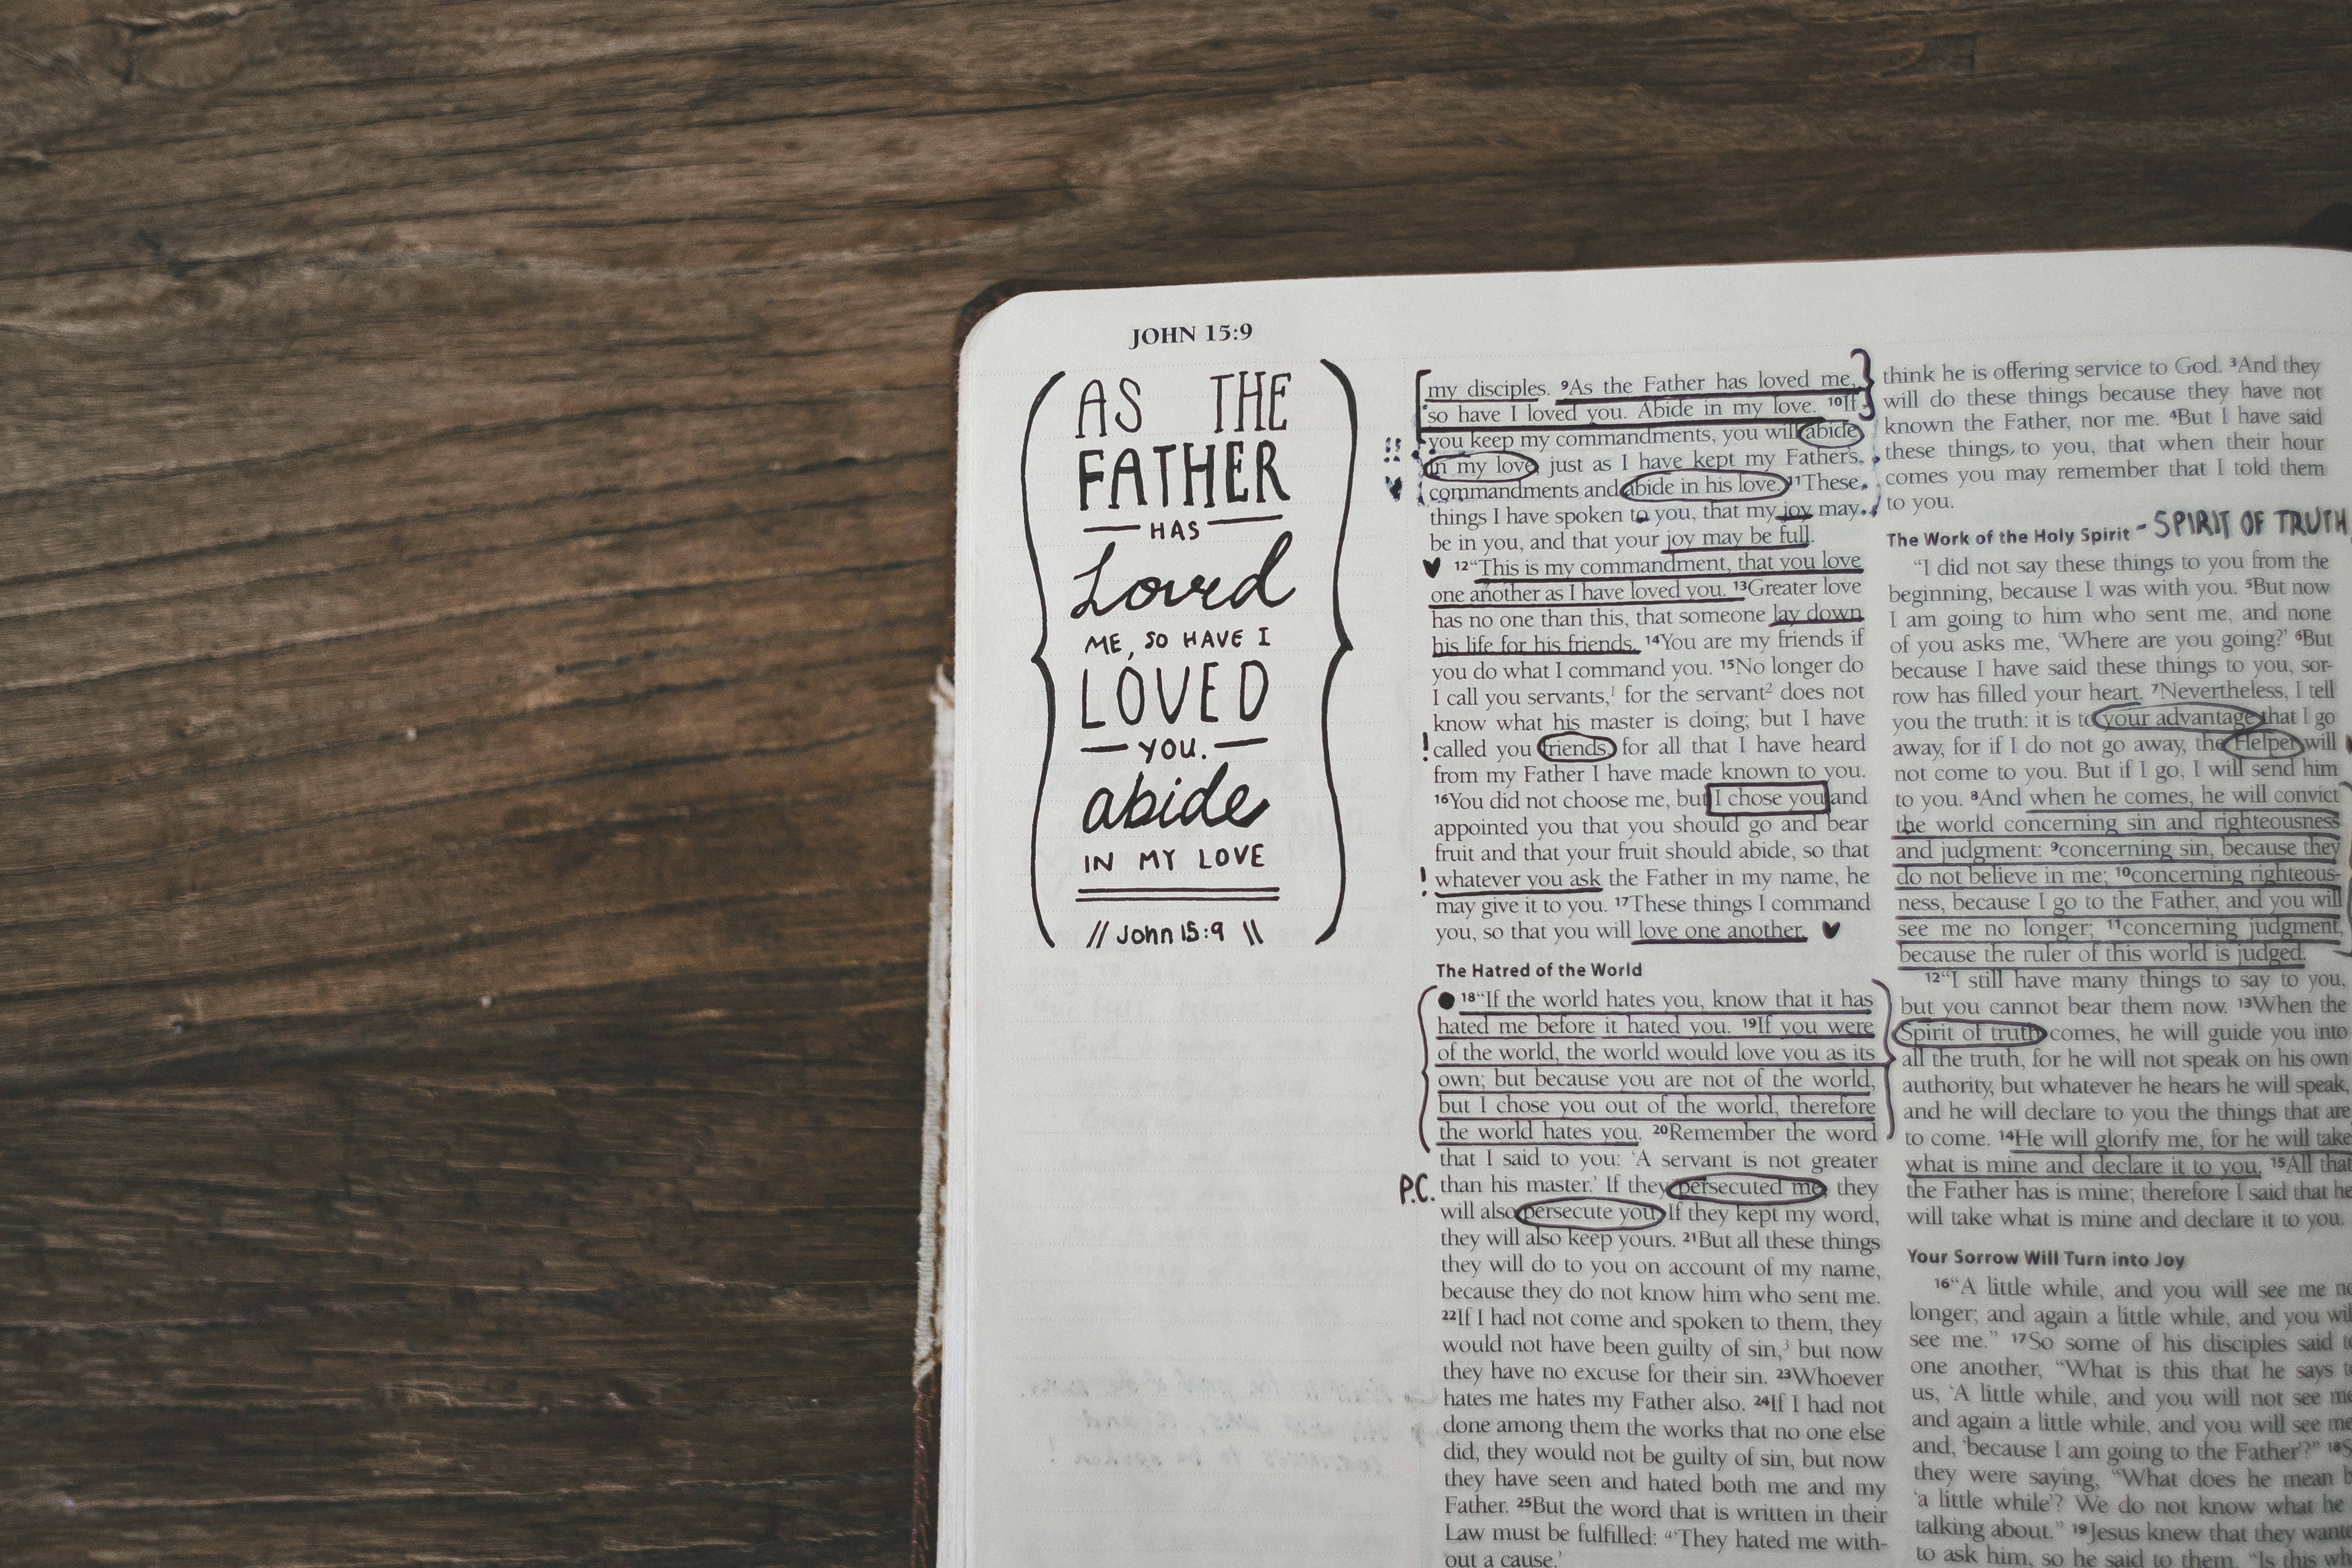 JOHN 15:9
AS THE
FATHER
HAS
Loved
ME, SO HAVE I
LOVED
YOU.
abide
IN MY LOVE
// John 15:9 \\
my disciples. ⁹As the Father has loved me,
so have I loved you. Abide in my love. ¹⁰If
you keep my commandments, you will abide
in my love, just as I have kept my Father's
commandments and abide in his love. ¹¹These
things I have spoken to you, that my joy may
be in you, and that your joy may be full.
¹²“This is my commandment, that you love
one another as I have loved you. ¹³Greater love
has no one than this, that someone lay down
his life for his friends. ¹⁴You are my friends if
you do what I command you. ¹⁵No longer do
I call you servants,¹ for the servant² does not
know what his master is doing; but I have
! called you friends, for all that I have heard
from my Father I have made known to you.
¹⁶You did not choose me, but I chose you and
appointed you that you should go and bear
fruit and that your fruit should abide, so that
! whatever you ask the Father in my name, he
may give it to you. ¹⁷These things I command
you, so that you will love one another.
The Hatred of the World
¹⁸“If the world hates you, know that it has
hated me before it hated you. ¹⁹If you were
of the world, the world would love you as its
own; but because you are not of the world,
but I chose you out of the world, therefore
the world hates you. ²⁰Remember the word
that I said to you: ‘A servant is not greater
P.C. than his master.’ If they persecuted me, they
will also persecute you. If they kept my word,
they will also keep yours. ²¹But all these things
they will do to you on account of my name,
because they do not know him who sent me.
²²If I had not come and spoken to them, they
would not have been guilty of sin,³ but now
they have no excuse for their sin. ²³Whoever
hates me hates my Father also. ²⁴If I had not
done among them the works that no one else
did, they would not be guilty of sin, but now
they have seen and hated both me and my
Father. ²⁵But the word that is written in their
Law must be fulfilled: “‘They hated me with-
out a cause.’
think he is offering service to God. ³And they
will do these things because they have not
known the Father, nor me. ⁴But I have said
these things to you, that when their hour
comes you may remember that I told them
to you.
The Work of the Holy Spirit - SPIRIT OF TRUTH
“I did not say these things to you from the
beginning, because I was with you. ⁵But now
I am going to him who sent me, and none
of you asks me, ‘Where are you going?’ ⁶But
because I have said these things to you, sor-
row has filled your heart. ⁷Nevertheless, I tell
you the truth: it is to your advantage that I go
away, for if I do not go away, the Helper will
not come to you. But if I go, I will send him
to you. ⁸And when he comes, he will convict
the world concerning sin and righteousness
and judgment: ⁹concerning sin, because they
do not believe in me; ¹⁰concerning righteous-
ness, because I go to the Father, and you will
see me no longer; ¹¹concerning judgment,
because the ruler of this world is judged.
¹²“I still have many things to say to you,
but you cannot bear them now. ¹³When the
Spirit of truth comes, he will guide you into
all the truth, for he will not speak on his own
authority, but whatever he hears he will speak,
and he will declare to you the things that are
to come. ¹⁴He will glorify me, for he will take
what is mine and declare it to you. ¹⁵All that
the Father has is mine; therefore I said that he
will take what is mine and declare it to you.
Your Sorrow Will Turn into Joy
¹⁶“A little while, and you will see me no
longer; and again a little while, and you will
see me.” ¹⁷So some of his disciples said to
one another, “What is this that he says to
us, ‘A little while, and you will not see me,
and again a little while, and you will see me’;
and, ‘because I am going to the Father’?”
they were saying, “What does he mean
‘a little while’? We do not know what he
talking about.” ¹⁹Jesus knew that they
to ask him, so he said to them, “Is this